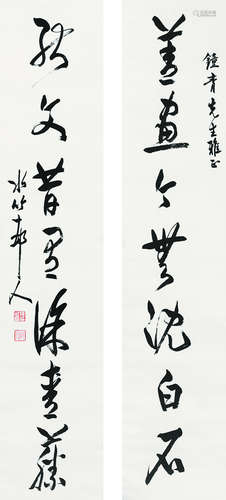 鐘青先生雅正
善畫今無沈白石
能文昔有徐青藤
水竹邨人